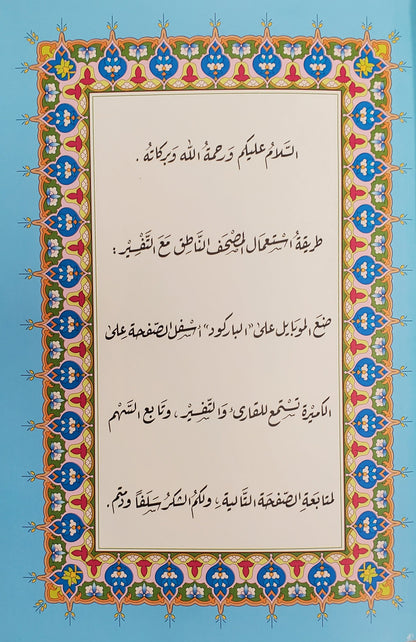 السَّلامُ عليكم وَرحمةُ اللّه وَبركاتهُ .
طريقةُ استعمال المصْحَف النّاطق مَعَ التَّفْسِيْر :
ضَعَ الموبايل على "الباركود" أسْفل الصّفحة على
الكاميرة تسْتمع للقارئ وَالتّفسيْر ، وتابع السَّهم
لمتابَعةِ الصّفحة التَّالية ، ولكمُ الشكر سَلَفاً ودمتم .